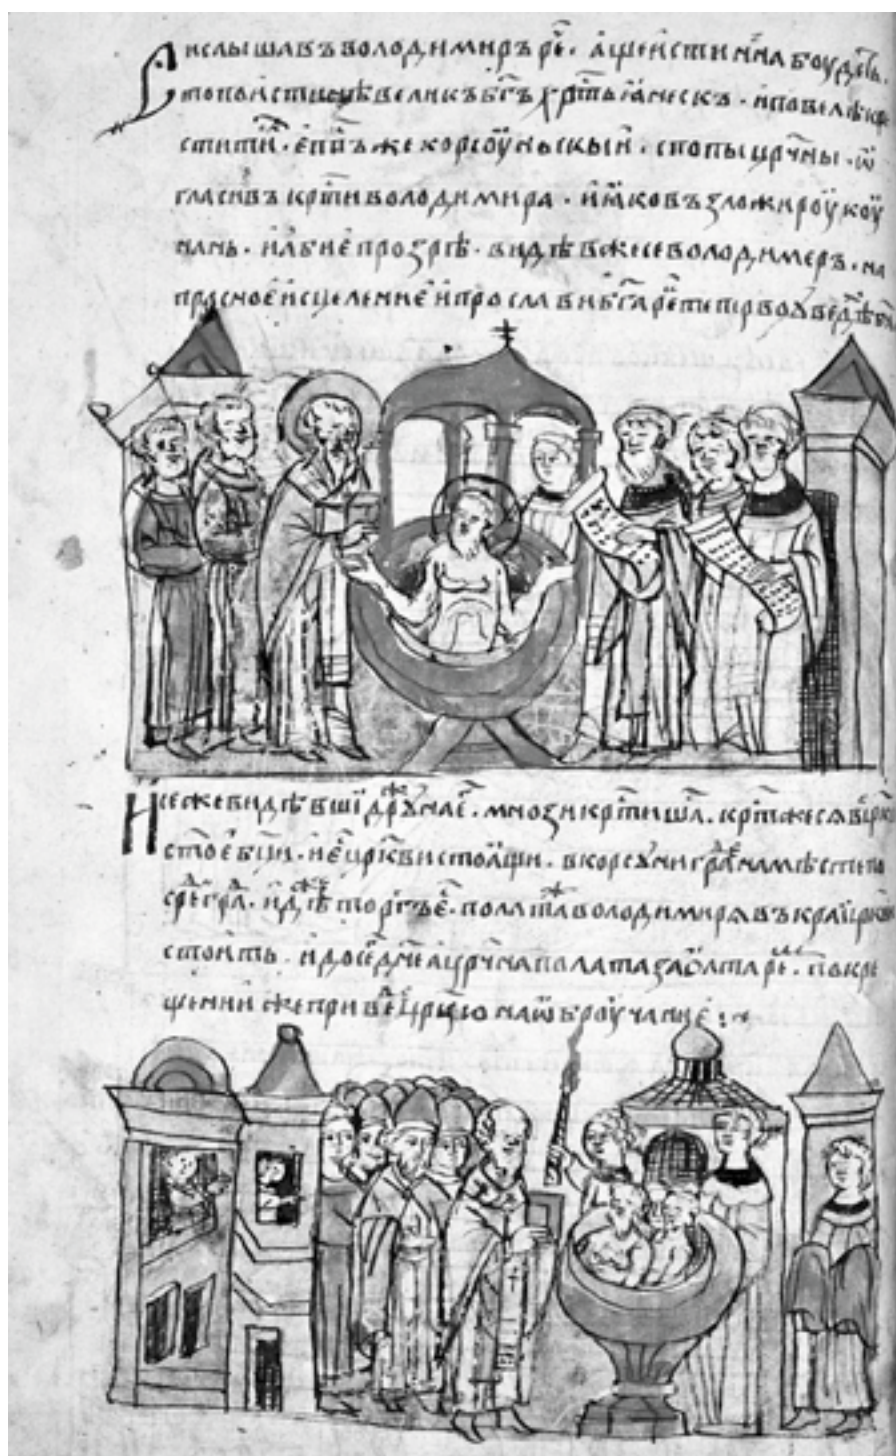 И слышавъ володимиръ реⷱ҇. аще истинна боудеть.
то поистинѣ великъ бг҃ъ хрⷭ҇тьꙗнескъ. и повелѣ кре
стити. еп҃пъ же корсоуньскыи. с попы цр҃чны. ѡ
гласивъ крⷭ҇ти володимира. и ꙗко възложи роукоу
на нь. и абие прозрѣ. видѣвже се володимеръ. на
прасное исцеление и прослави бг҃а реⷱ҇
се же видѣвши дрꙋжина е҃. мнози крⷭ҇тишⷭ҇ѧ. крⷭ҇т же сѧ в цр҃кви
ст҃ое бц҃и. и е҃ црк҃ви стоꙗщи. в корсꙋни граⷣ на мѣсте по
среⷣ граⷣ. идѣже торгъ деюⷮ. полата володимирѧ въ краи црк҃ви
стоить. и до сеⷢ дн҃е а цр҃чна полата за ѡлтареⷨ. по кре
щении же приведе цр҃цю на ѡброучание:~